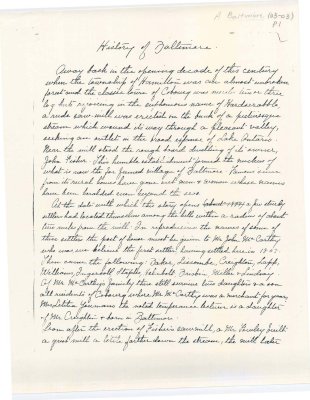 A Baltimore (03-03)
P1
History of Baltimore.
Away back in the opening decade of this century
when the township of Hamilton was an almost unbroken
forest and the classic town of Cobourg was much less three
log huts rejoicing in the euphonious name of Hardscrabble
a rude saw mill was erected on the bank of a picturesque
stream which wound its way through a pleasant valley,
seeking an outlet in the broad expanse of Lake Ontario.
Near the mill stood the rough board dwelling of its owner,
John Fisher. This humble establishment formed the nucleus of
what is now the far famed village of Baltimore. Famous since
from its rural homes have gone out men & women whose names
have been heralded even beyond the sea.
At the date with which this story opens (about) a few sturdy
settlers had located themselves among the hills within a radius of about
two miles from the mill. In reproducing the names of some of
these settlers the post of honor must be given to Mr John McCarthy
who was we believe the first settler having settled here in
Then came the following: Baker, Liscombe, Creighton, Lapp,
Williams, Ingersoll, Staples, Brisbin, Miller & Lindsay.
Of Mr McCarthy's family there still survive two daughters & a son
all residents of Cobourg where Mr McCarthy was a merchant for years.
Mrs Letitia Youmans the noted temperance lecturer is a daughter
of Mr Creighton & born in Baltimore.
Soon after the erection of Fisher's sawmill, a Mr Pewley built
a grist mill a little farther down the stream, the mill later